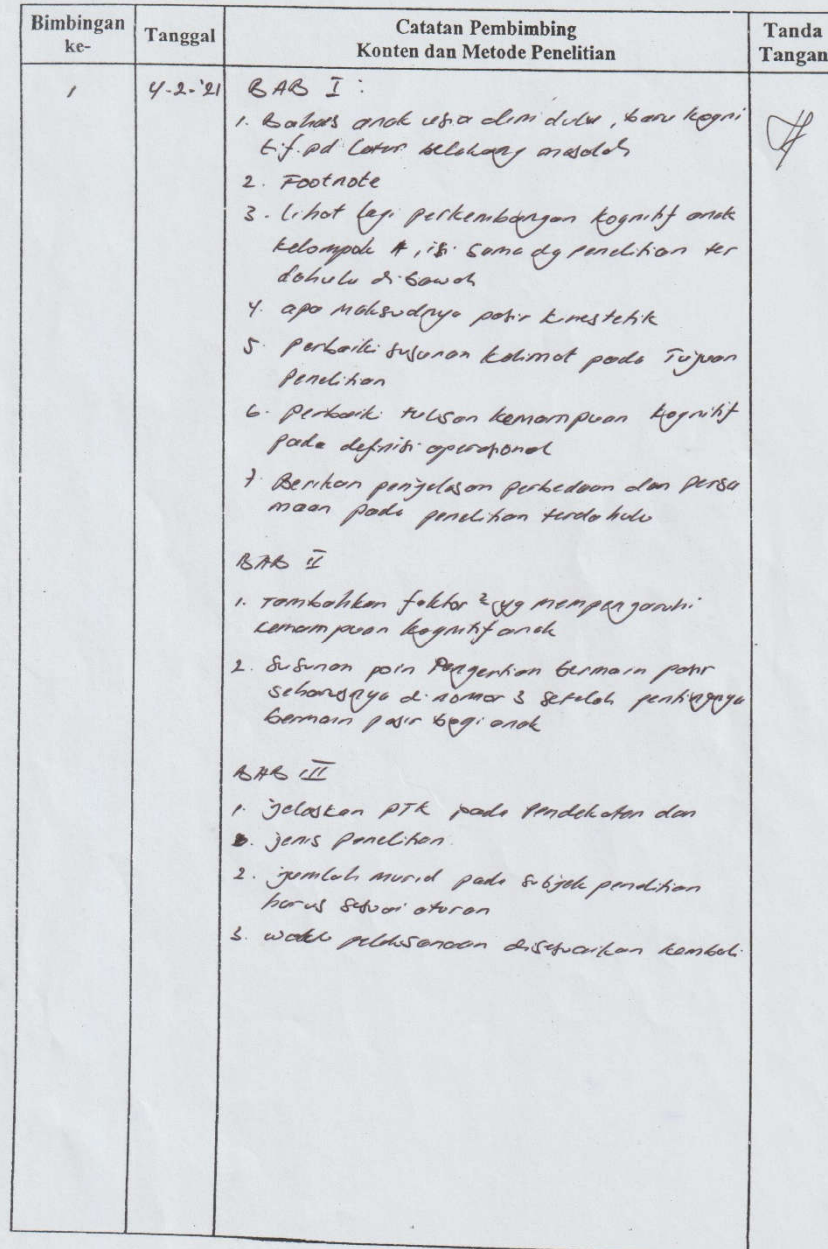 Bimbingan ke-
Tanggal
Catatan Pembimbing
Konten dan Metode Penelitian
Tanda Tangan
1
4-2-'21
BAB I :
1. Bahas anak usia dini dulu, baru kogni
tif pd latar belakang masalah
2. Footnote
3. lihat lagi perkembangan kognitif anak
kelompok A, isi sama dg penelitian ter
dahulu di bawah
4. apa maksudnya pasir kinestetik
5. perbaiki susunan kalimat pada Tujuan
Penelitian
6. perbaiki tulisan kemampuan kognitif
pada definisi operasional
7. Berikan penjelasan perbedaan dan persa
maan pada penelitian terdahulu
BAB II
1. Tambahkan faktor² yg mempengaruhi
kemampuan kognitif anak
2. Susunan poin Pengertian bermain pasir
seharusnya di nomor 3 setelah pentingnya
bermain pasir bagi anak
BAB III
1. jelaskan PTK pada Pendekatan dan
jenis Penelitian.
2. jumlah murid pada subjek penelitian
harus sesuai aturan
3. waktu pelaksanaan disesuaikan kembali